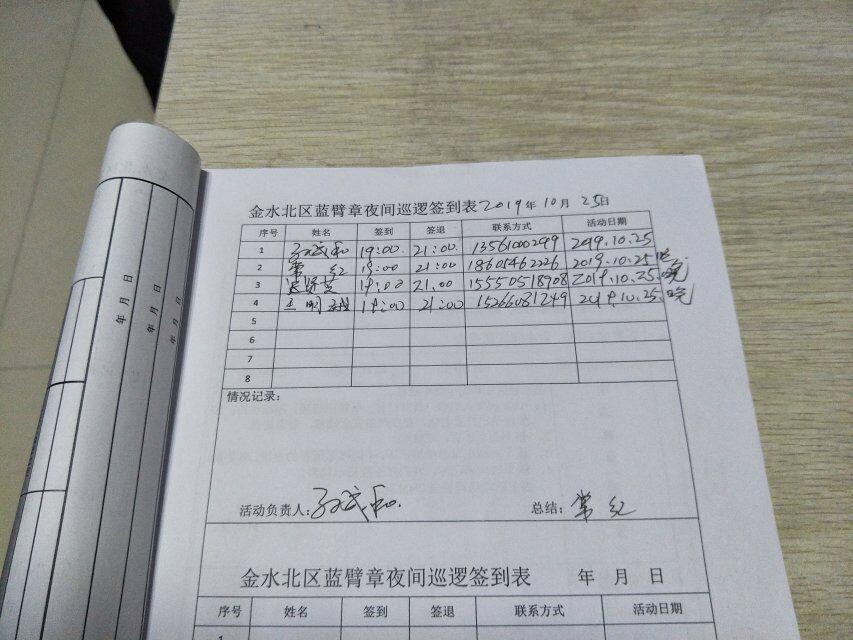 金水北区蓝臂章夜间巡逻签到表 2019年10月25日
序号 姓名 签到 签退 联系方式 活动日期
1 19:00 21:00 13561000299 2019.10.25
2 常红 19:00 21:00 18605462226 2019.10.25 晚
3 19:00 21:00 15550518908 2019.10.25 晚
4 19:00 21:00 15266081249 2019.10.25 晚
5
6
7
8
情况记录:
活动负责人:
总结: 常红
金水北区蓝臂章夜间巡逻签到表 年 月 日
序号 姓名 签到 签退 联系方式 活动日期
1
年 月 日
年 月 日
年 月 日